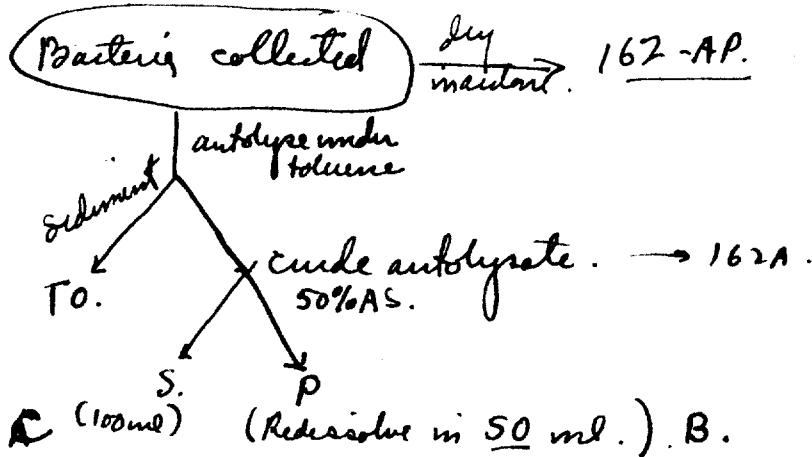 Bacteria collected dry in acetone. 162-AP.
autolyse under
toluene
sediment
TO. crude autolysate. → 162A.
50% AS.
S. P
C (100ml) (Redissolve in 50 ml.) B.